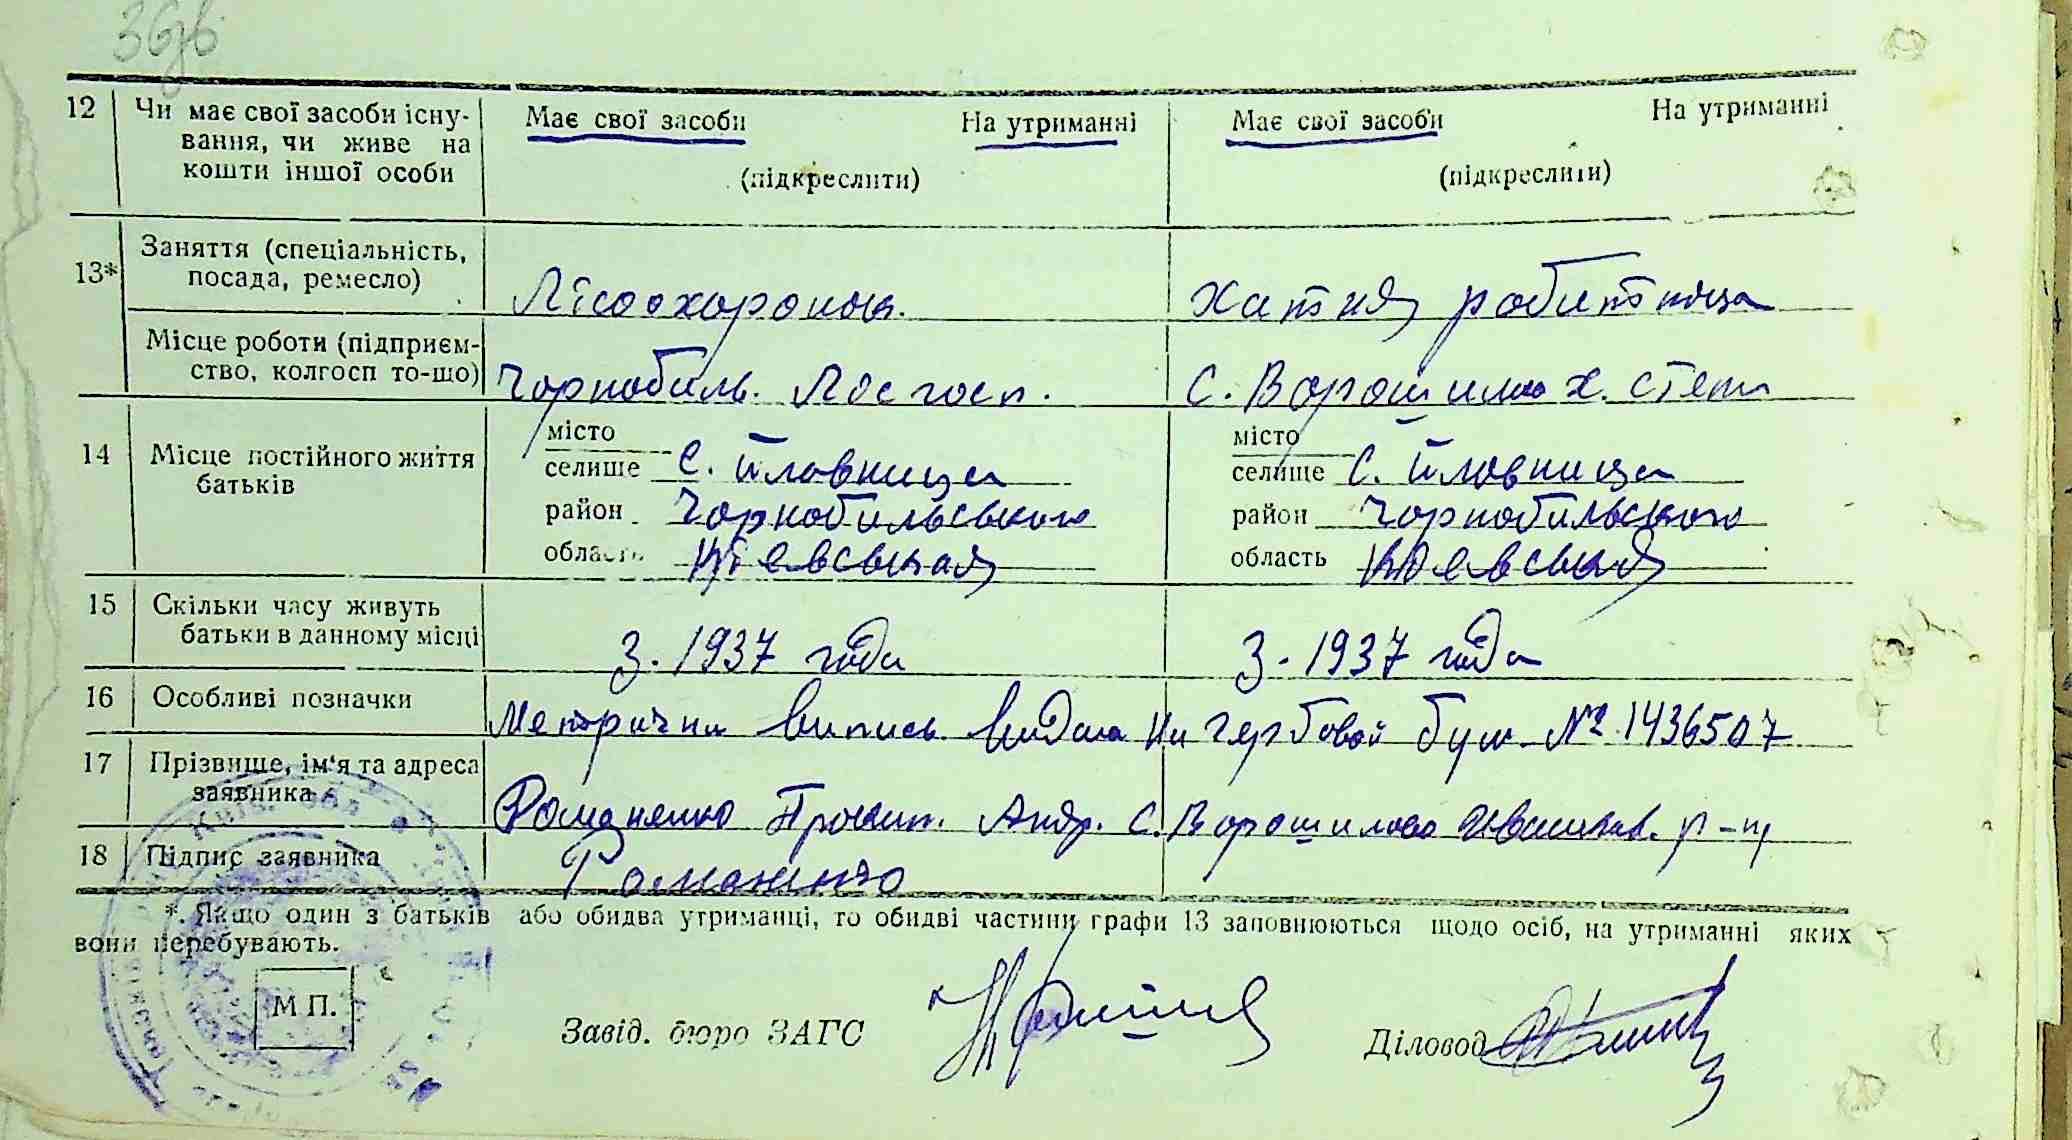 12 Чи має свої засоби існу- Має свої засоби На утриманні Має свої засоби На утриманні
вання, чи живе на
кошти іншої особи (підкреслити) (підкреслити)
13* Заняття (спеціальність,
посада, ремесло) Лісоохорона. Хатня робітниця
Місце роботи (підприєм-
ство, колгосп то-що) Чорнобиль. Лосгосп. С. Ворошилово х.
14 Місце постійного життя
батьків
місто місто
селище С. Йловница селище С. Йловница
район Чорнобильського район Чорнобильського
область Киевськая область Киевськая
15 Скільки часу живуть
батьки в данному місці З. 1937 года З. 1937 года
16 Особливі позначки Метрични випись видана на гербовой бум № 1436507
17 Прізвище, ім'я та адреса
заявника Романенко Андр. С. Ворошилово р-н
18 Підпис заявника Романенко
* Якщо один з батьків або обидва утриманці, то обидві частини графи 13 заповнюються щодо осіб, на утриманні яких
вони перебувають.
М П.
Завід. бюро ЗАГС Діловод